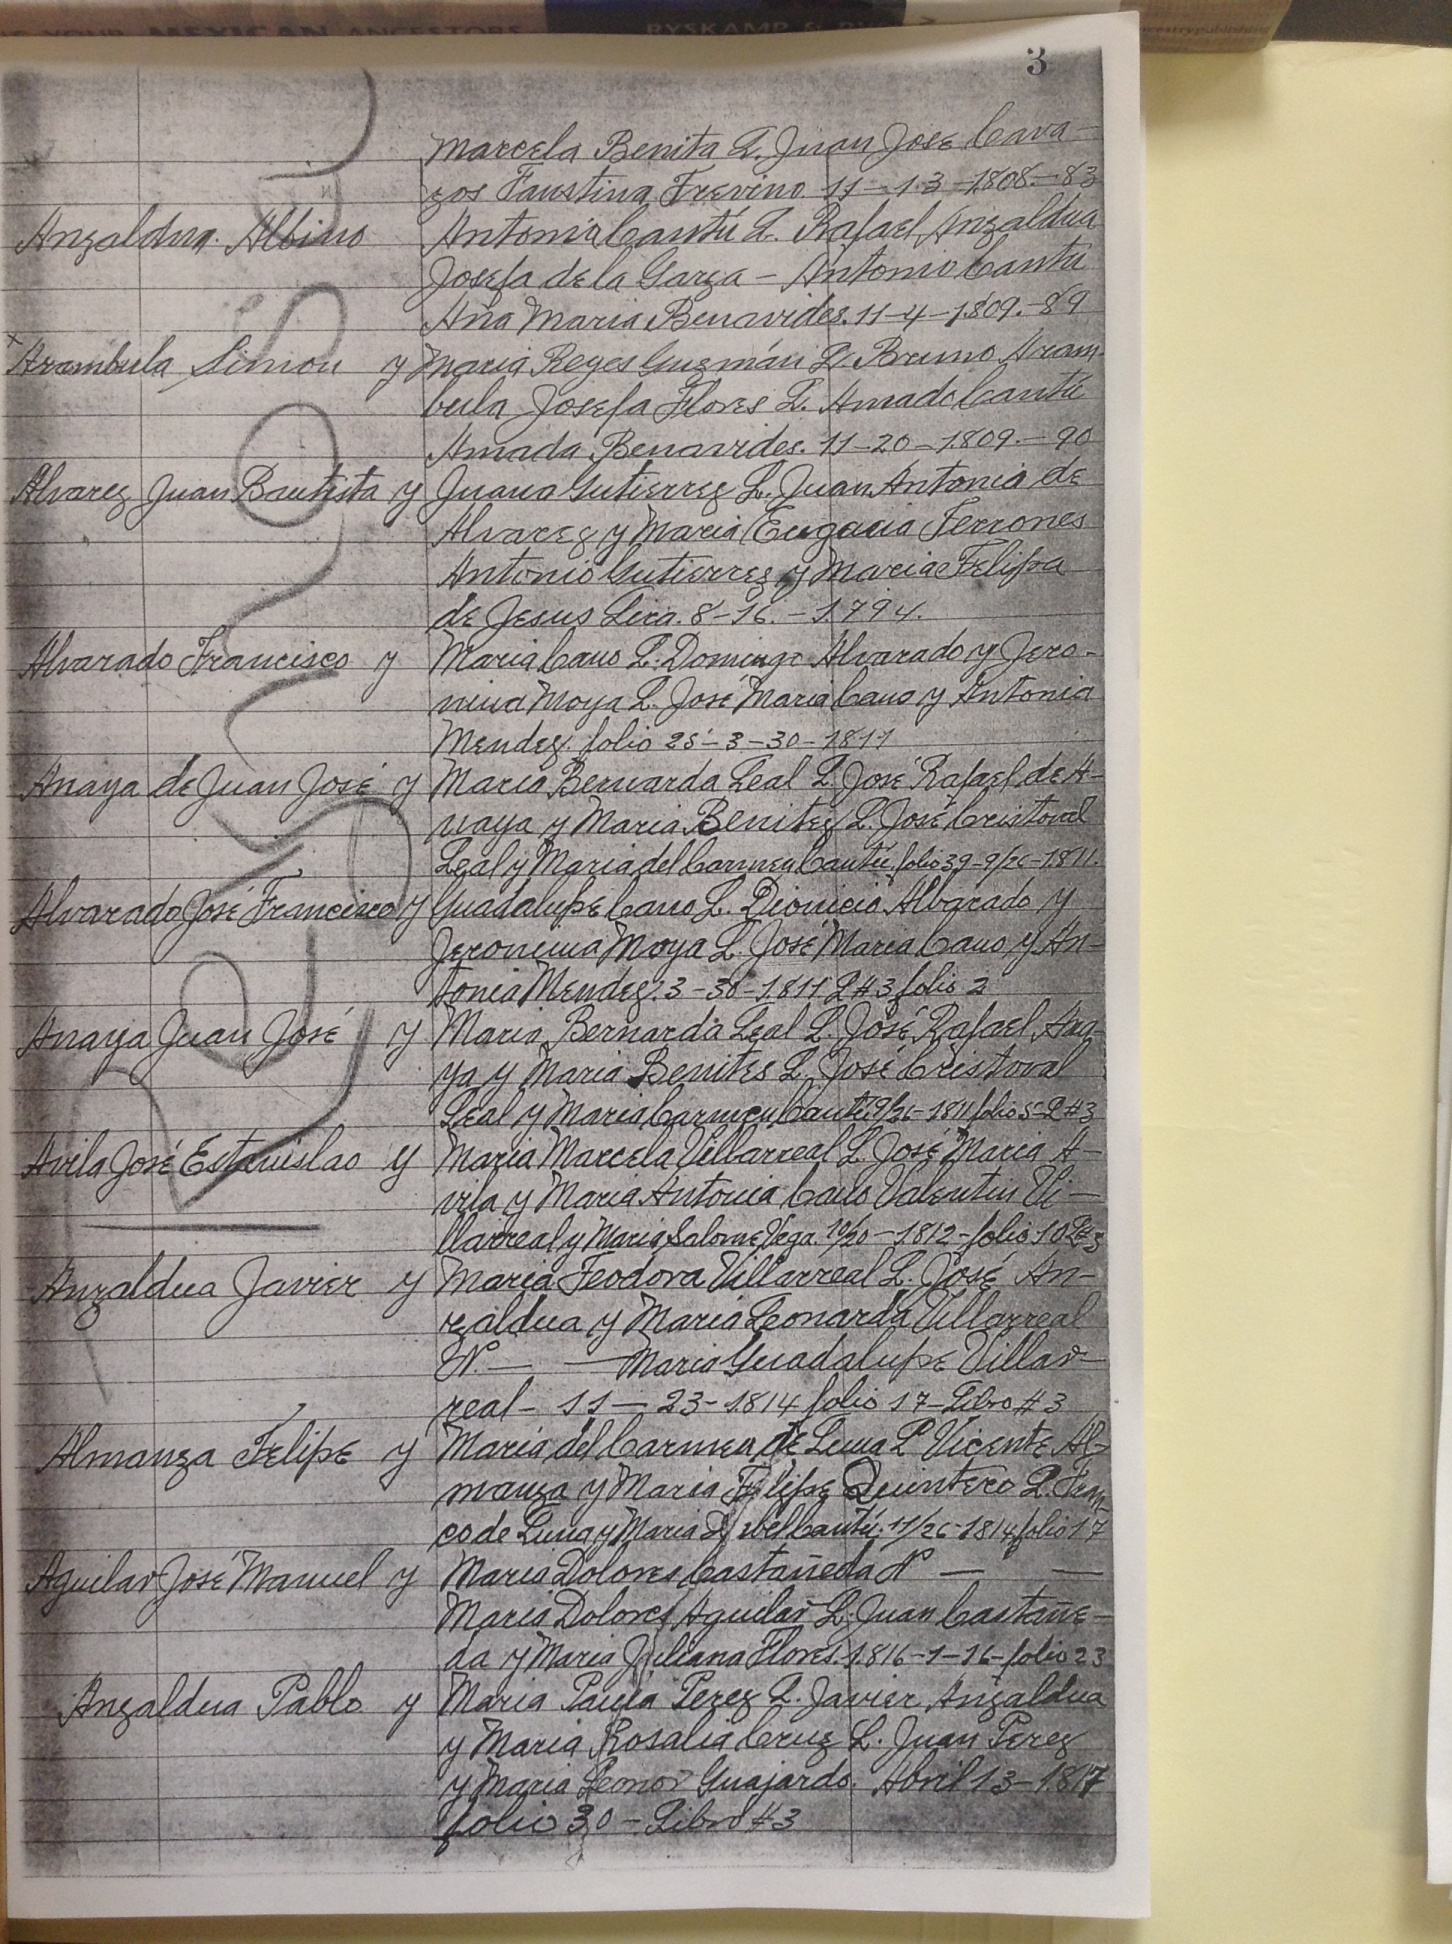 MEXICAN ANCESTORS RYSKAMP &
3
Marcela Benita L. Juan José Cava-
zos Faustina Trevino 11-13-1808.-83
Anzaldua. Albino Antonia Cantú L. Rafael Anzaldua
Josefa de la Garza - Antonio Cantú
Ana Maria Benavides. 11-4-1809.-89
x
Arambula Simon y Maria Reyes Guzmán L. Bruno Aram-
bula Josefa Flores L. Amado Cantú
Amada Benavides. 11-20-1809.-90
Alvarez Juan Bautista y Juana Gutierrez L. Juan Antonio de
Alvarez y Maria Eugenia Terrones
Antonio Gutierrez y Maria Felipa
de Jesus Lira. 8-16.-1794.
Alvarado Francisco y Maria Cano L. Domingo Alvarado y Jero-
nima Moya L. José Maria Cano y Antonia
Mendez. folio 25-3-30-1811
Anaya de Juan José y Maria Bernarda Leal L. José Rafael de A-
naya y Maria Benitez L. José Cristoval
Leal y Maria del Carmen Cantú. folio 39-9/26-1811.
Alvarado José Francisco y Guadalupe Cano L. Dionicio Albarado y
Jeronima Moya L. José Maria Cano y An-
tonia Mendez. 3-30-1811 L#3 folio 2
Anaya Juan José y Maria Bernarda Leal L. José Rafael Ana-
ya y Maria Benites L. José Cristoval
Leal y Maria Carmen Cantú. 9/26-1811 folio 5-L#3
Avila José Estanislao y Maria Marcela Villarreal L. José Maria A-
vila y Maria Antonia Cano Valentin Vi-
llarreal y Maria Salome Vega. 10/20-1812-folio 10 L#3
Anzaldua Javier y Maria Teodora Villarreal L. José An-
zaldua y Maria Leonarda Villarreal
N.— —Maria Guadalupe Villar-
real- 11-23-1814 folio 17-Libro #3
Almanza Felipe y Maria del Carmen de Luna L. Vicente Al-
manza y Maria Felipe Quintero L. Fran-
co de Luna y Maria Cantú. 11/26-1814 folio 17
Aguilar José Manuel y Maria Dolores Castañeda N — —
Maria Dolores Aguilar L. Juan Castañe-
da y Maria Juliana Flores. 1816-1-16-folio 23
Anzaldua Pablo y Maria Paula Perez L. Javier Anzaldua
y Maria Rosalia Cruz L. Juan Perez
y Maria Leonor Guajardo. Abril 13-1817
folio 30-Libro #3